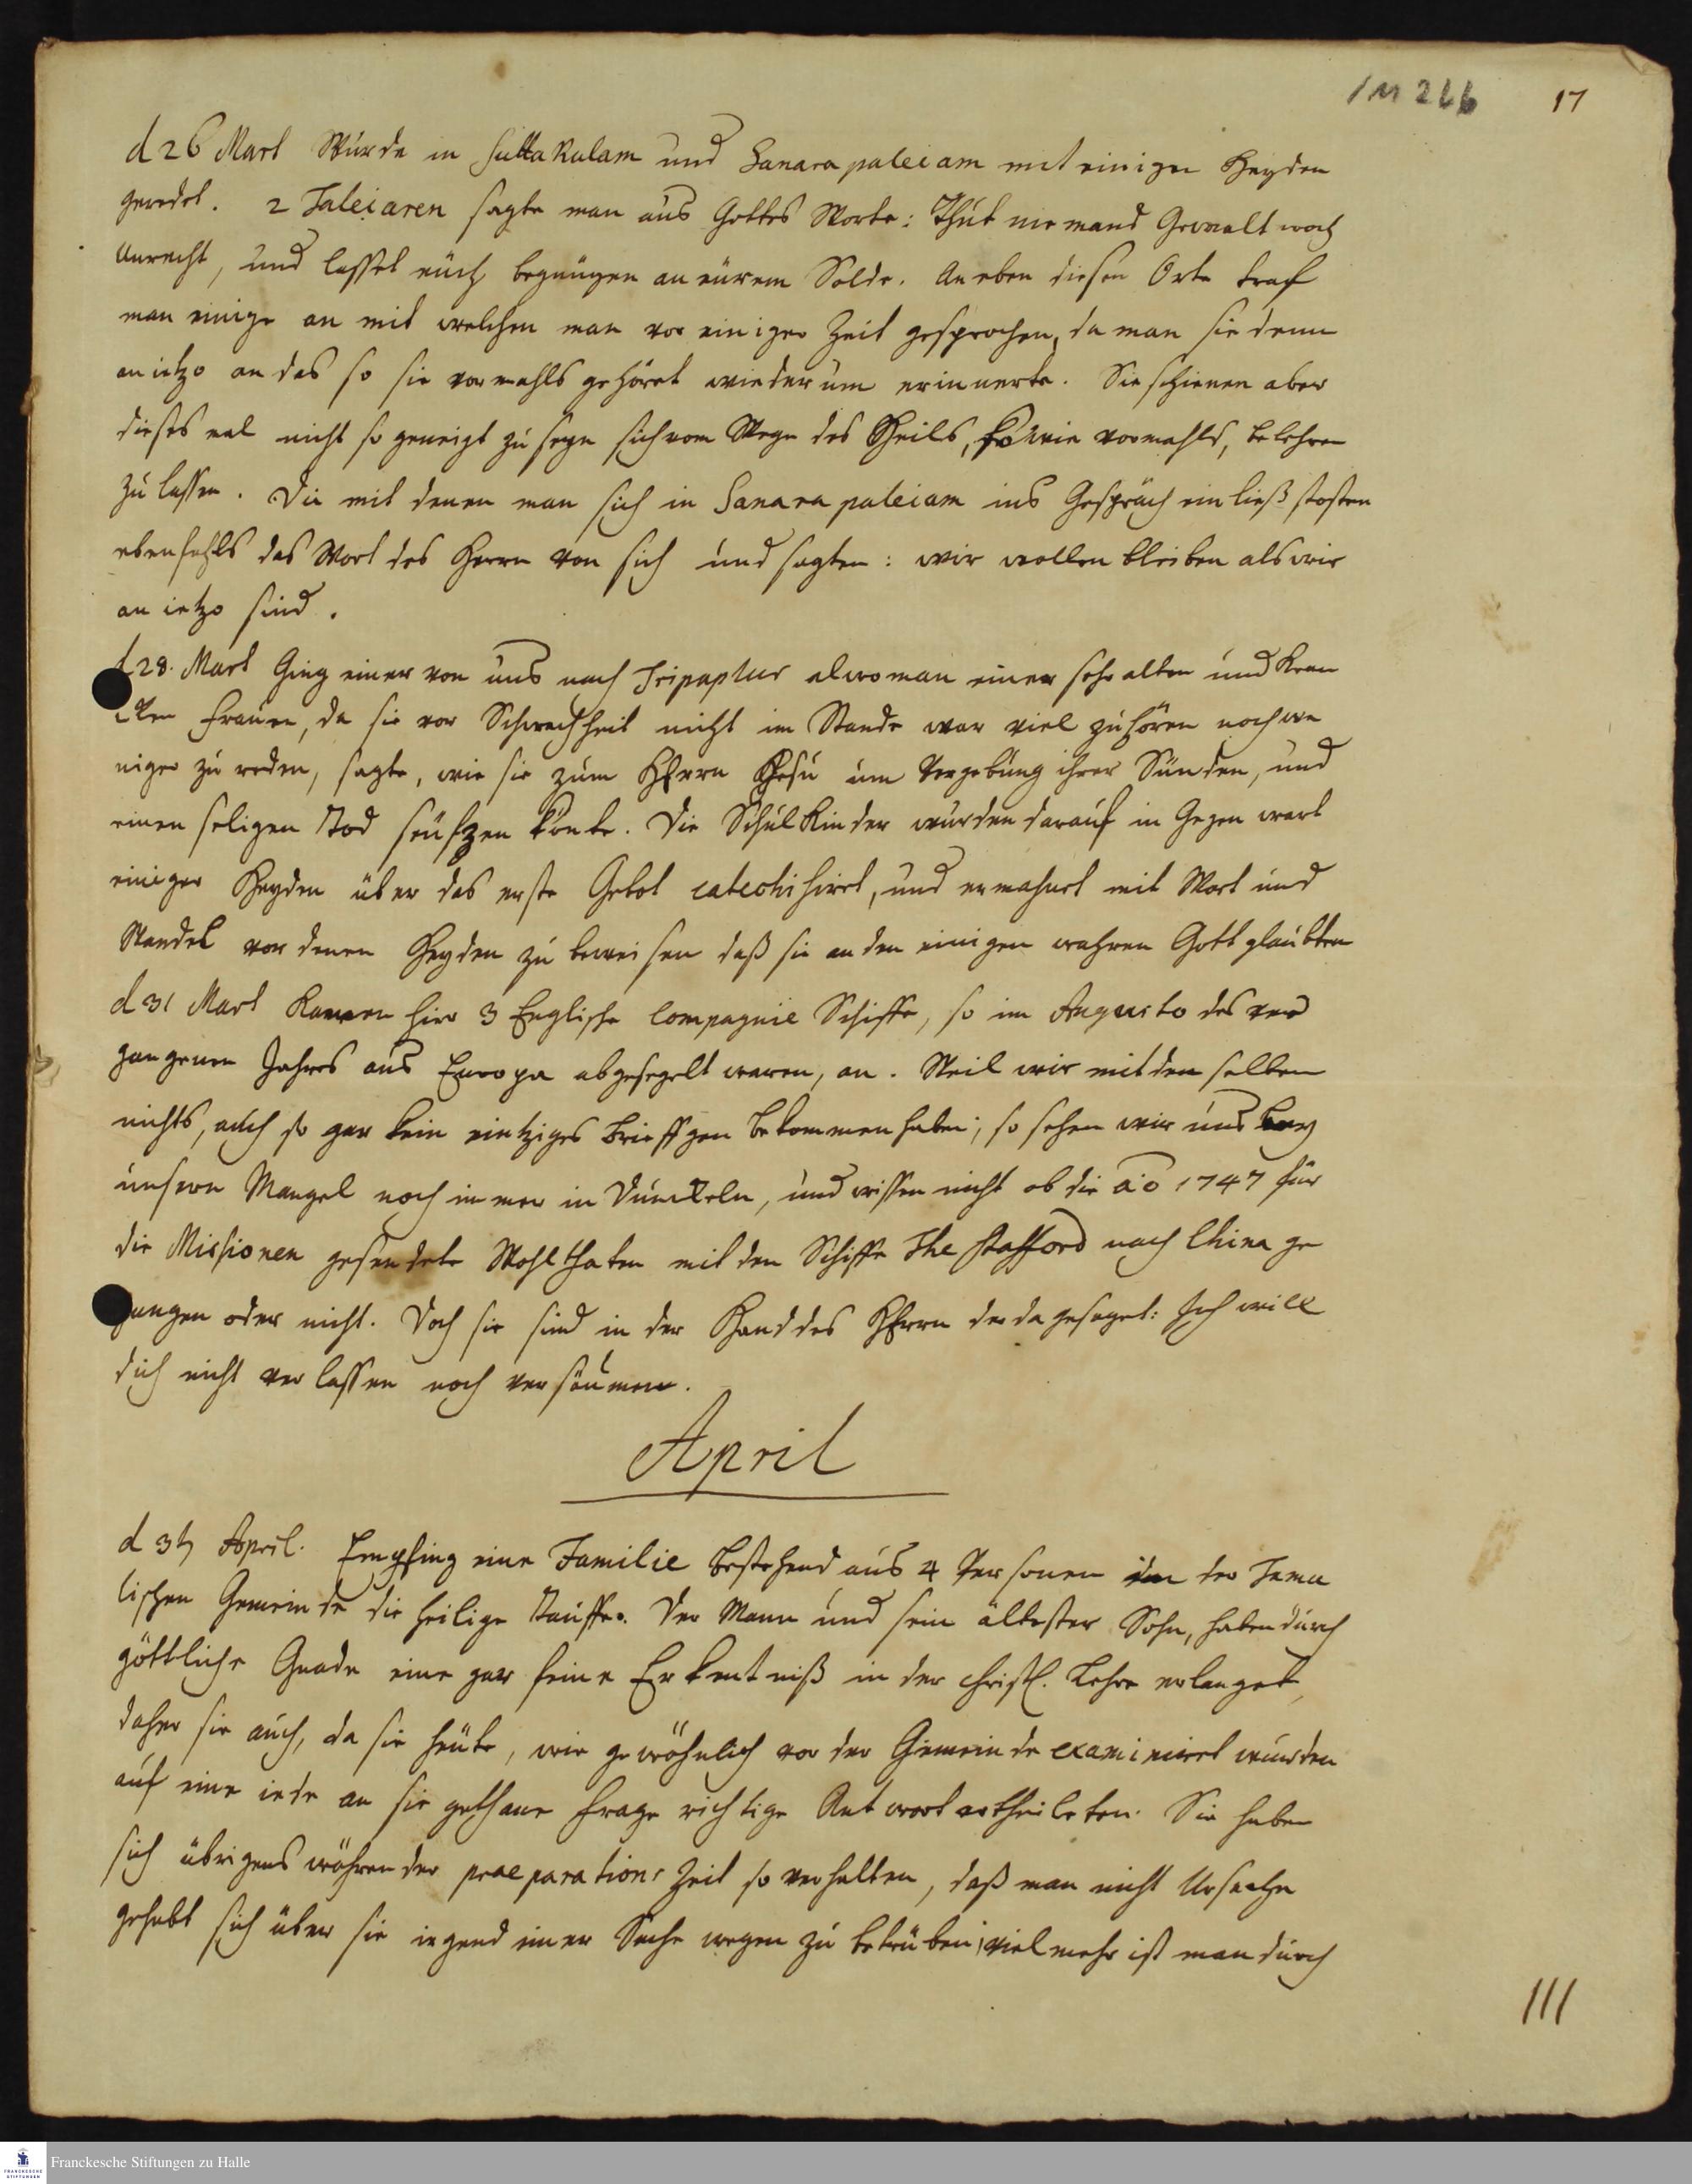 1M 2 6b 17
d 26 Mart Wurde in Suttakulam und Sanarapaleiam mit einigen Heyden
geredet. 2 Taleiaren sagte man aus Gottes Worte: Thut niemand Gewalt noch
Unrecht, und lasset euch begnügen an eurem Solde. An eben diesen Orte traf
man einige an mit welchen man vor einiger Zeit gesprochen, da man sie denn
anietzo an das so sie vormahls gehöret wiederum erinnerte. Sie schienen aber
dieses mal nicht so geneigt zu seyn sich vom Wege des Heils, so wie vormahls, belehren
zu lassen. Die mit denen man sich in Sanarapaleiam ins Gespräch ein ließ stoßen
ebenfahls das Wort des Herrn von sich und sagten: wir wollen bleiben als wir
an ietzo sind.
d 28. Mart Ging einer von uns nach Tripaptur alwo man einer sehr alten und kran
cken Frauen, da sie vor Schwachheit nicht im Stande war viel zu hören noch we
niger zu reden, sagte, wie sie zum HErrn Jesu um Vergebung ihrer Sünden, und
einen seligen Tod seufzen könte. Die Schulkinder wurden darauf in Gegenwart
einiger Heyden über das erste Gebot catechisiret, und ermahnet mit Wort und
Wandel vor denen Heyden zu beweisen daß sie an den einigen wahren Gott glaubten
d 31 Mart kamen hier 3 Englische Compagnie Schiffe, so im Augusto des ver
gangenen Jahres aus Europa abgesegelt waren, an. Weil wir mit den selben
nichts, auch so gar kein eintziges Brieffgen bekommen haben; so sehen wir uns bey
unsern Mangel noch immer in Dunckeln, und wissen nicht ob die aō 1747 für
die Missionen gesendete Wohlthaten mit den Schiffe The Stafford nach China ge
gangen oder nicht. Doch sie sind in der Hand des HErrn der da gesaget: Ich will
dich nicht verlassen noch versäumen.
April
d 3t April. Empfing eine Familie bestehend aus 4 Personen in der Tamu
lischen Gemeinde die heilige Tauffe. Der Mann und sein ältester Sohn, haben durch
göttliche Gnade eine gar feine Erkentniß in der christl. Lehre erlanget,
daher sie auch, da sie heute, wie gewöhnlich vor der Gemeinde examiniret wurden
auf eine iede an sie gethane Frage richtige Antwort ertheileten. Sie haben
sich übrigens währender praeparations Zeit so verhalten, daß man nicht Ursache
gehabt sich über sie irgend einer Sache wegen zu betrüben; vielmehr ist man durch
111
Franckesche Stiftungen zu Halle